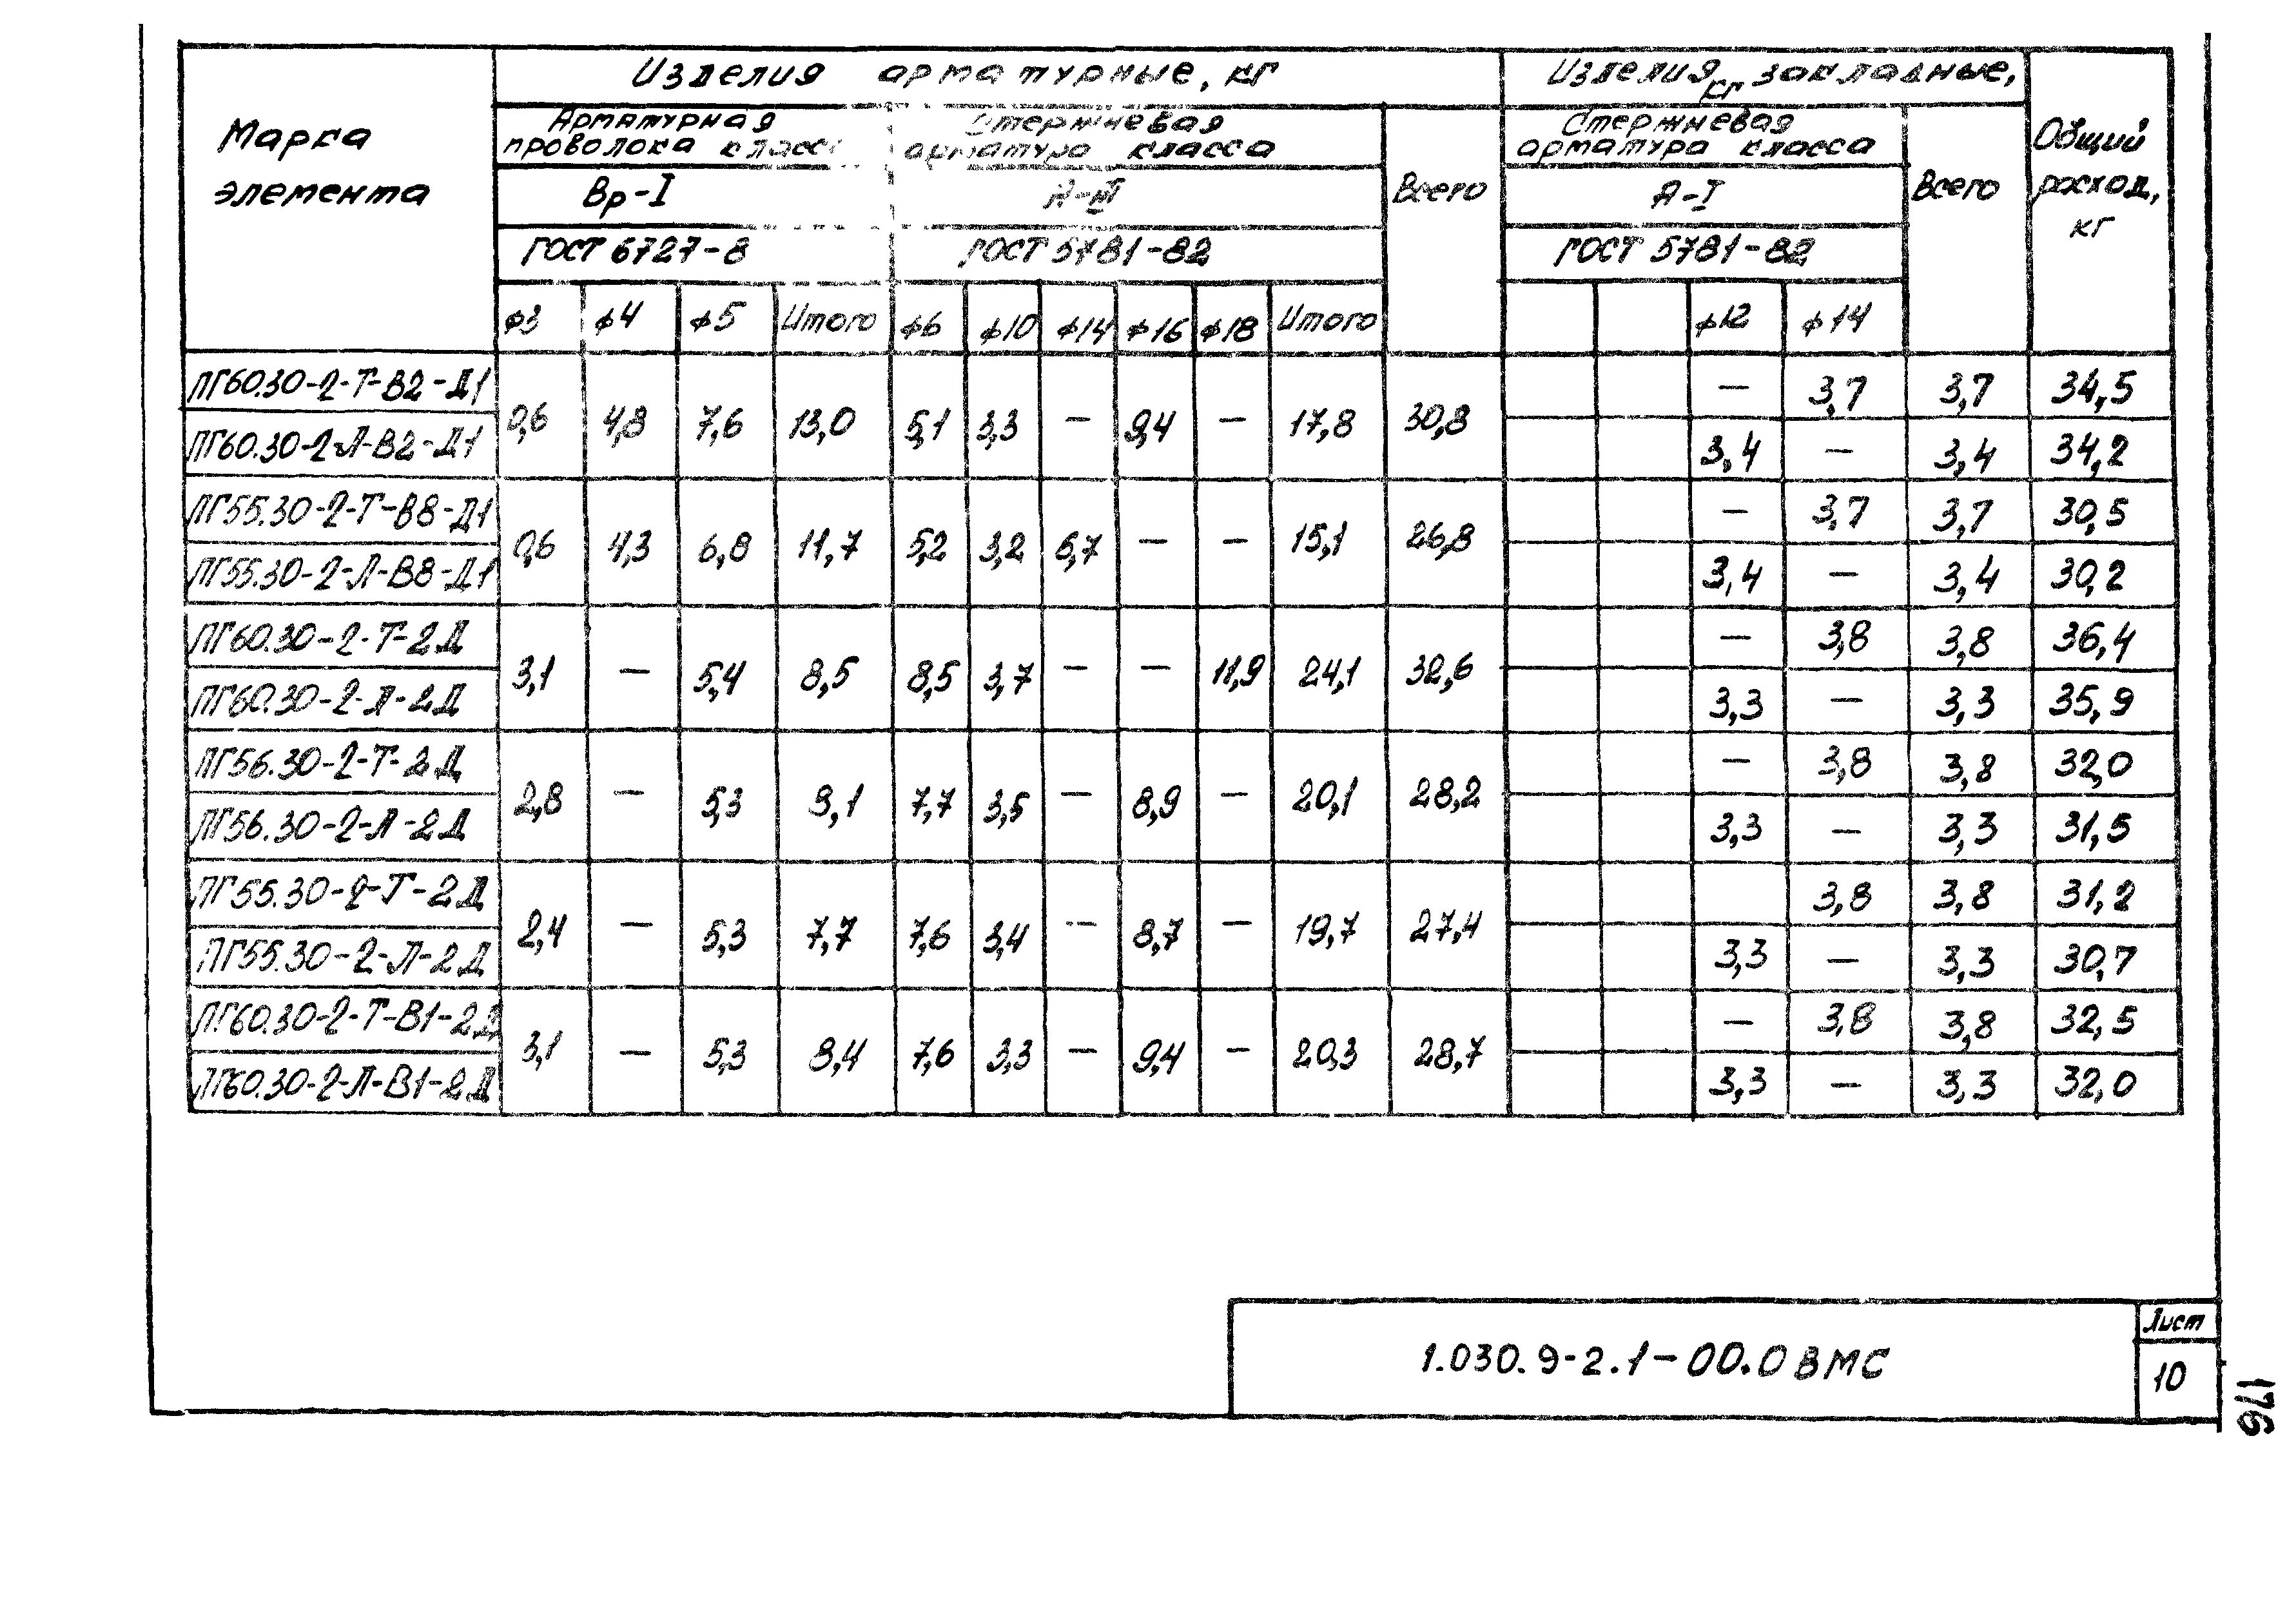 Марка элемента
Изделия арматурные, кг
Изделия закладные, кг
Общий расход, кг
Арматурная проволока класса
Стержневая арматура класса
Всего
Стержневая арматура класса
Всего
Вр-I
А-III
А-I
ГОСТ 6727-8
ГОСТ 5781-82
ГОСТ 5781-82
ф3 ф4 ф5 Итого ф6 ф10 ф14 ф16 ф18 Итого ф12 ф14
ПГ60.30-2-Т-В2-Д1 — 3,7 3,7 34,5
0,6 4,8 7,6 13,0 5,1 3,3 — 9,4 — 17,8 30,8
ПГ60.30-2-Л-В2-Д1 3,4 — 3,4 34,2
ПГ55.30-2-Т-В8-Д1 — 3,7 3,7 30,5
0,6 4,3 6,8 11,7 5,2 3,2 6,7 — — 15,1 26,8
ПГ55.30-2-Л-В8-Д1 3,4 — 3,4 30,2
ПГ60.30-2-Т-2Д — 3,8 3,8 36,4
3,1 — 5,4 8,5 8,5 3,7 — — 11,9 24,1 32,6
ПГ60.30-2-Л-2Д 3,3 — 3,3 35,9
ПГ56.30-2-Т-2Д — 3,8 3,8 32,0
2,8 — 5,3 8,1 7,7 3,5 — 8,9 — 20,1 28,2
ПГ56.30-2-Л-2Д 3,3 — 3,3 31,5
ПГ55.30-2-Т-2Д 3,8 3,8 31,2
2,4 — 5,3 7,7 7,6 3,4 — 8,7 — 19,7 27,4
ПГ55.30-2-Л-2Д 3,3 — 3,3 30,7
ПГ60.30-2-Т-В1-2Д — 3,8 3,8 32,5
3,1 — 5,3 8,4 7,6 3,3 — 9,4 — 20,3 28,7
ПГ60.30-2-Л-В1-2Д 3,3 — 3,3 32,0
1.030.9-2.1-00.0 ВМС
Лист
10
176